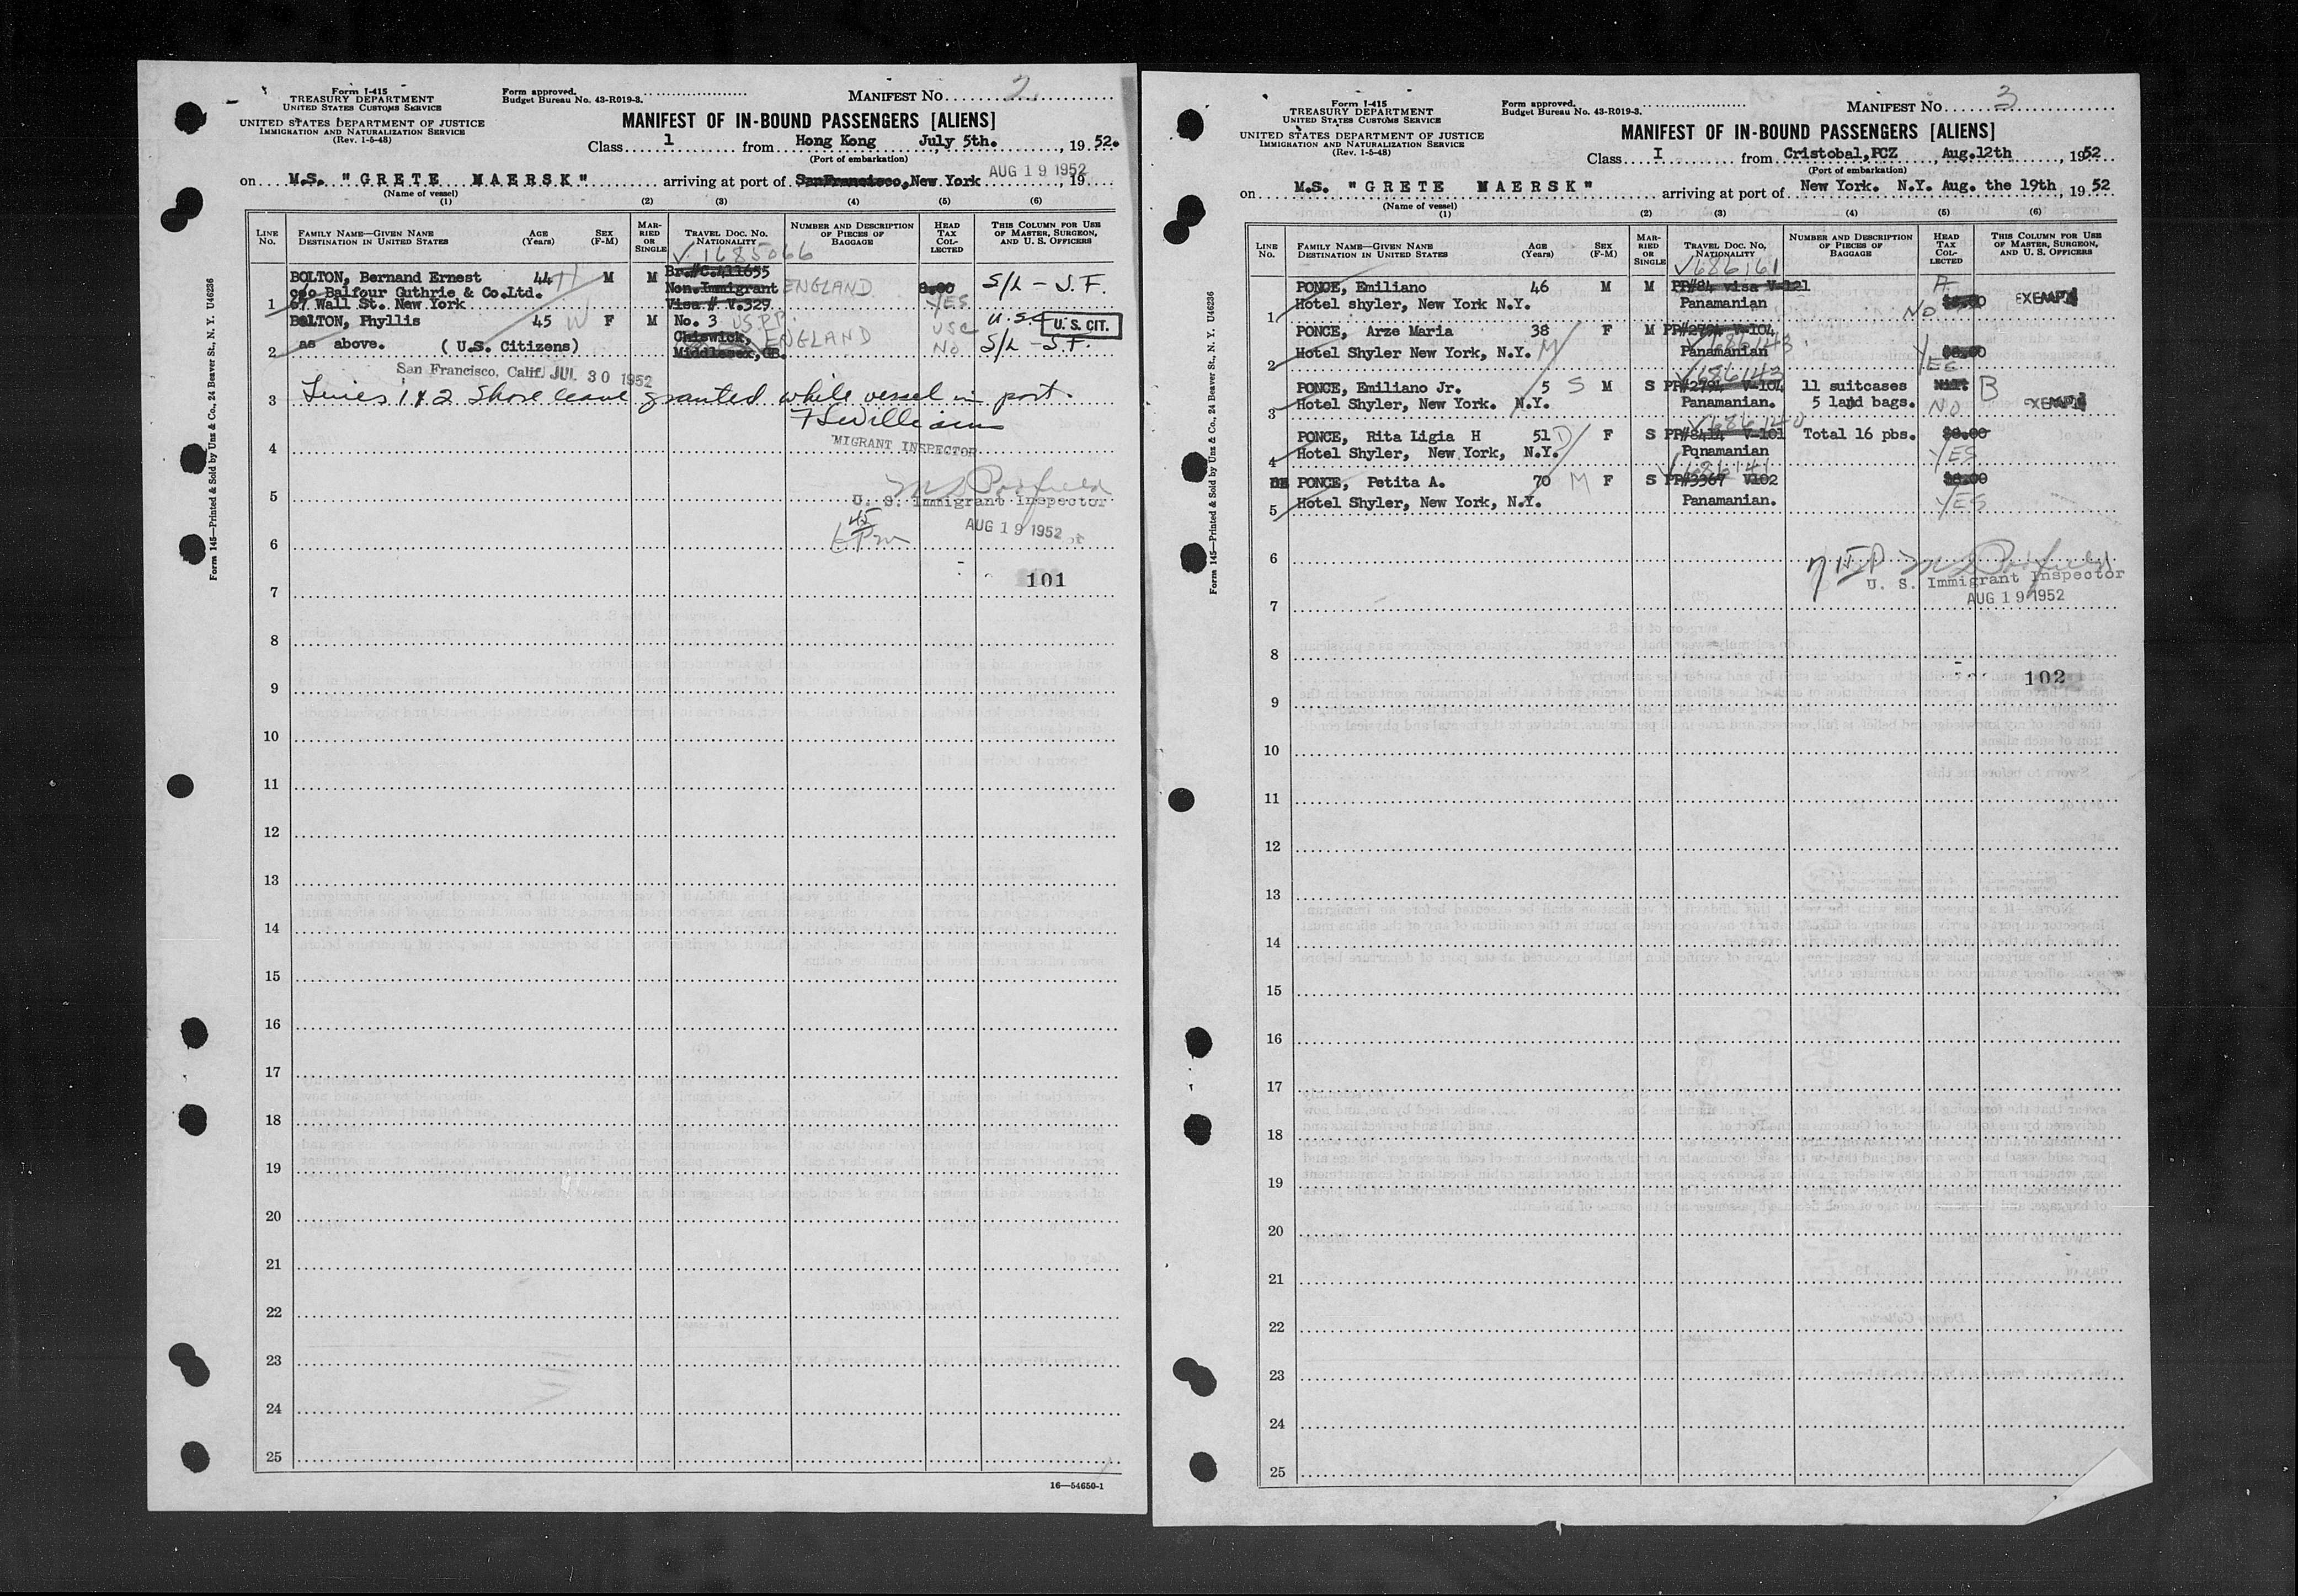 Form I-415
TREASURY DEPARTMENT
UNITED STATES CUSTOMS SERVICE
UNITED STATES DEPARTMENT OF JUSTICE
IMMIGRATION AND NATURALIZATION SERVICE
(Rev. 1-5-48)
Form approved.
Budget Bureau No. 43-R019-3.
MANIFEST NO. 2
MANIFEST OF IN-BOUND PASSENGERS [ALIENS]
Class 1 from Hong Kong July 5th. , 19 52.
(Port of embarkation)
AUG 19 1952
on M.S. "GRETE MAERSK" arriving at port of San Francisco, New York , 19
(Name of vessel)
(1) (2) (3) (4) (5) (6)
LINE NO.
FAMILY NAME—GIVEN NAME
DESTINATION IN UNITED STATES
AGE (Years)
SEX (F-M)
MARRIED OR SINGLE
TRAVEL DOC. NO. NATIONALITY
NUMBER AND DESCRIPTION OF PIECES OF BAGGAGE
HEAD TAX COLLECTED
THIS COLUMN FOR USE OF MASTER, SURGEON, AND U. S. OFFICERS
V 1685066
BOLTON, Bernand Ernest 44 M M Br.#C.411655
c/o Balfour Guthrie & Co.Ltd. Non.Immigrant ENGLAND 8.00 S/L - S.F.
1 67 Wall St. New York Visa # V.329 YES
BOLTON, Phyllis 45 W F M No. 3 US PP. USC U.S.C U. S. CIT.
2 as above. (U.S. Citizens) Chiswick, Middlesex,GB. ENGLAND No S/L - S.F.
San Francisco, Calif. JUL 30 1952
3 Lines 1 & 2 Shore leave granted while vessel in port.
MIGRANT INSPECTOR
4
5 U. S. Immigrant Inspector
AUG 19 1952
6
101
7
8
9
10
11
12
13
14
15
16
17
18
19
20
21
22
23
24
25
16—54650-1
Form 145—Printed & Sold by Unz & Co., 24 Beaver St., N. Y. U46236
Form I-415
TREASURY DEPARTMENT
UNITED STATES CUSTOMS SERVICE
UNITED STATES DEPARTMENT OF JUSTICE
IMMIGRATION AND NATURALIZATION SERVICE
(Rev. 1-5-48)
Form approved.
Budget Bureau No. 43-R019-3.
MANIFEST NO. 3
MANIFEST OF IN-BOUND PASSENGERS [ALIENS]
Class I from Cristobal, PCZ , Aug.12th , 1952
(Port of embarkation)
on M.S. "GRETE MAERSK" arriving at port of New York. N.Y. Aug. the 19th, 19 52
(Name of vessel)
(1) (2) (3) (4) (5) (6)
LINE NO.
FAMILY NAME—GIVEN NAME
DESTINATION IN UNITED STATES
AGE (Years)
SEX (F-M)
MARRIED OR SINGLE
TRAVEL DOC. NO. NATIONALITY
NUMBER AND DESCRIPTION OF PIECES OF BAGGAGE
HEAD TAX COLLECTED
THIS COLUMN FOR USE OF MASTER, SURGEON, AND U. S. OFFICERS
V686161
PONCE, Emiliano 46 M M PP#84 visa V-121 A
1 Hotel shyler, New York N.Y. Panamanian NO $8.00 EXEMPT
PONCE, Arze Maria 38 F M PP#2794 V-104
V686143
2 Hotel Shyler New York, N.Y. M Panamanian YES $8.00
V686142
PONCE, Emiliano Jr. 5 S M S PP#2794 V-104 11 suitcases B
3 Hotel Shyler, New York. N.Y. Panamanian. 5 land bags. NO EXEMPT
V686140
PONCE, Rita Ligia H 51 D F S PP#8414 V-101 Total 16 pbs. $8.00
4 Hotel Shyler, New York, N.Y. Panamanian YES
V686141
PONCE, Petita A. 70 M F S PP#3367 V102 $8.00
5 Hotel Shyler, New York, N.Y. Panamanian. YES
6
U. S. Immigrant Inspector
AUG 19 1952
7
8
102
9
10
11
12
13
14
15
16
17
18
19
20
21
22
23
24
25
Form 145—Printed & Sold by Unz & Co., 24 Beaver St., N. Y. U46236